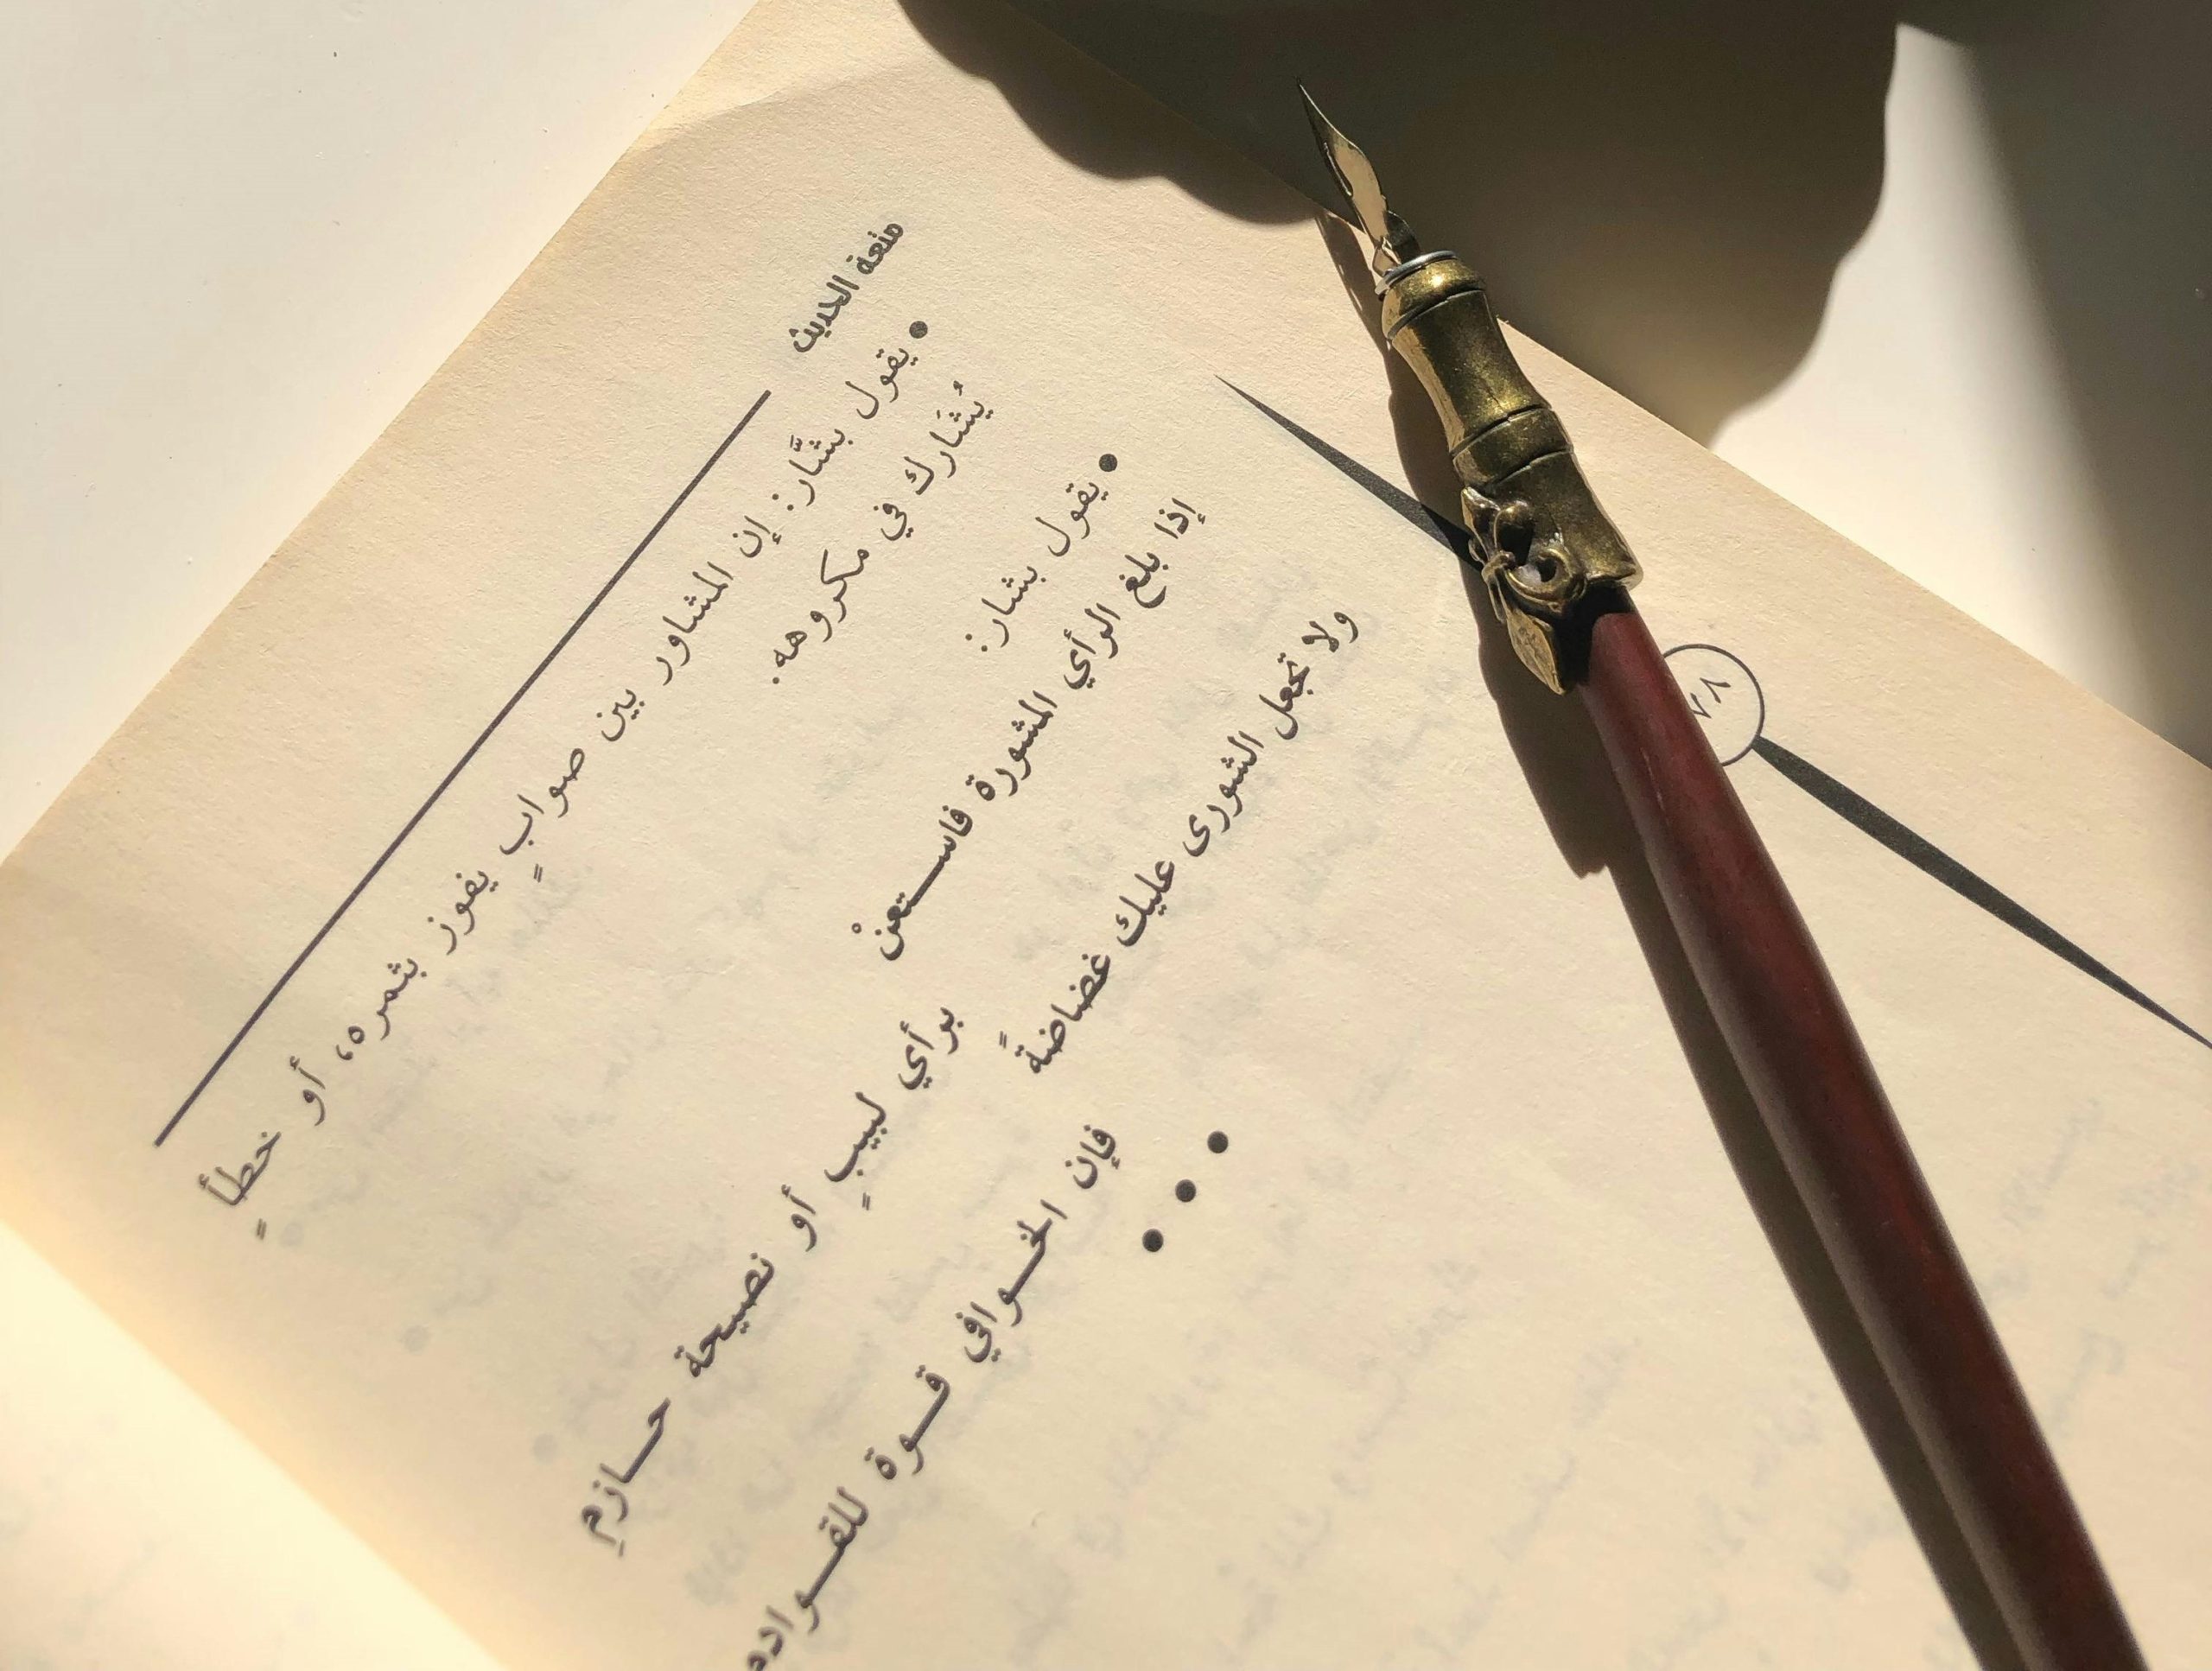 متعة الحديث
• يقول بشَّار: إن المشاور بين صوابٍ يفوز بثمره، أو خطأٍ
يُشَارك في مكروهه.
• يقول بشار:
إذا بلغ الرأي المشورة فاستعنْ برأي لبيبٍ أو نصيحة حازمِ
ولا تجعل الشورى عليك غضاضةً فإن الخوافي قوة للقوادم
• • •